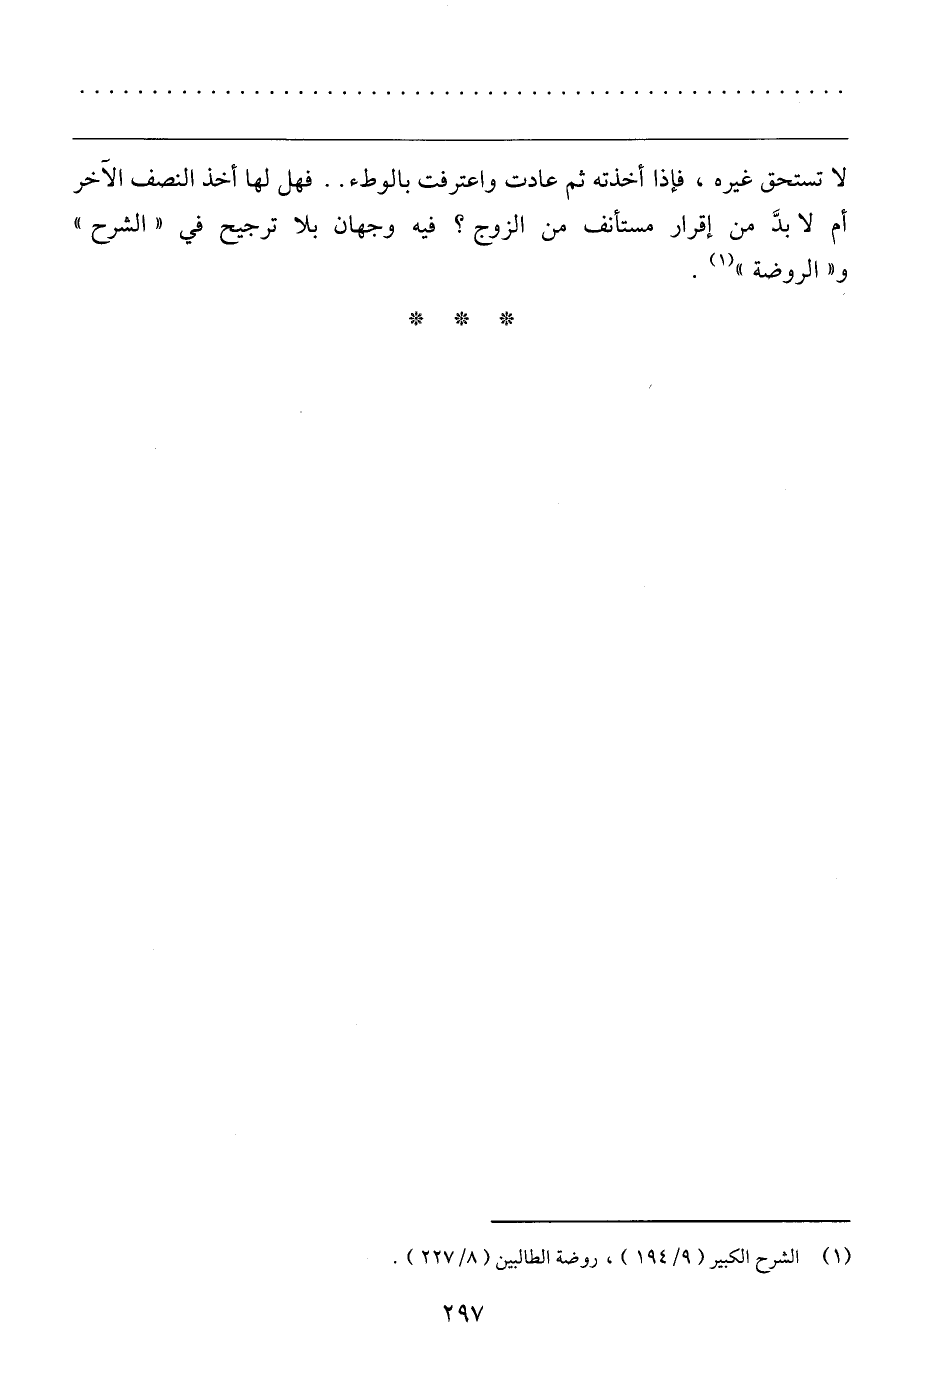 لا تستحق غيره ، فإذا أخذته ثم عادت واعترفت بالوطء . . فهل لها أخذ النصف الآخر
أم لا بدَّ من إقرار مستأنف من الزوج ؟ فيه وجهان بلا ترجيح في « الشرح »
و« الروضة »(١) .
* * *
(١) الشرح الكبير ( ٩/ ١٩٤ ) ، روضة الطالبين ( ٨/ ٢٢٧ ) .
٢٩٧